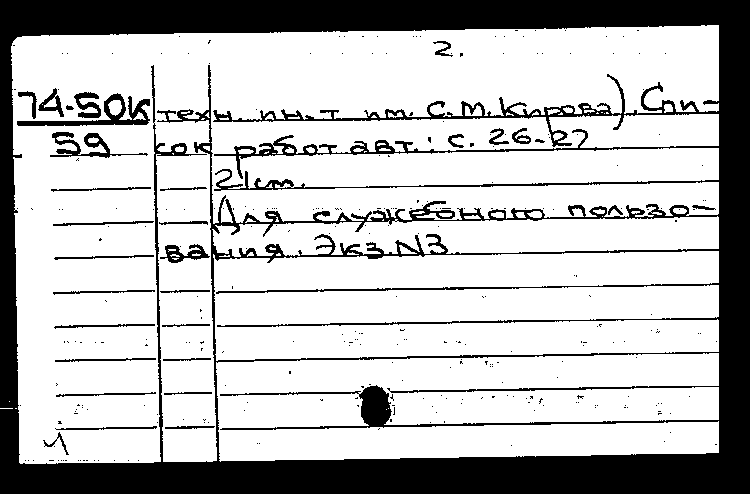 2.
74-50К техн. ин-т им. С.М. Кирова). Спи-
59 сок работ авт.: с. 26-27
21 см.
Для служебного пользо-
вания. Экз. N3